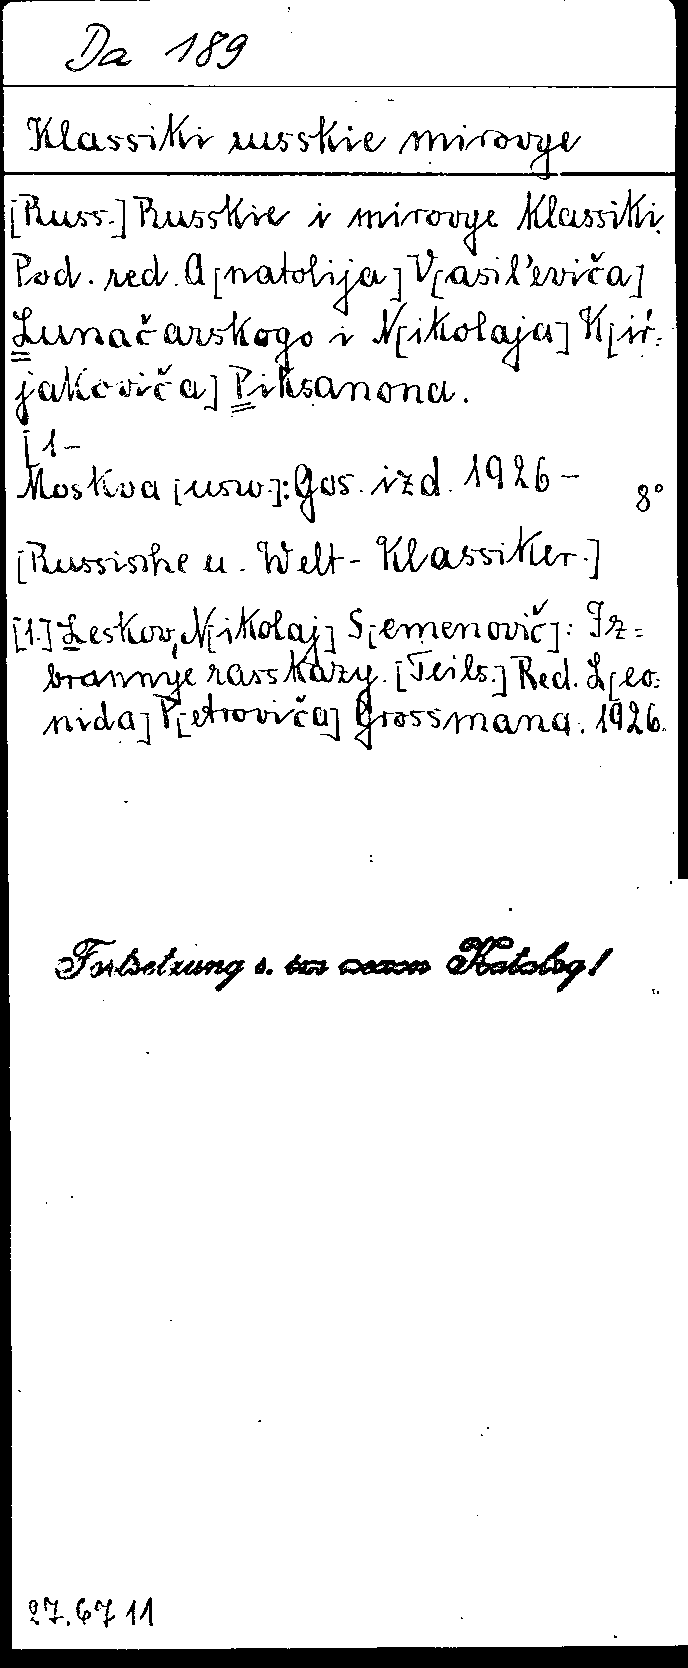 Da 189
Klassiki russkie mirovye
[Russ.] Russkie i mirovye klassiki.
Pod. red. A[natolija] V[asil'eviča]
Lunačarskogo i N[ikolaja] K[ir=
jakoviča] Piksanona.
[1-
Moskva [usw.]: Gos. izd. 1926 - 8°
[Russische u. Welt-Klassiker.]
[1.] Leskov, N[ikolaj] S[emenovič]: Iz=
brannye rasskazy. [Teils.] Red. L[eo=
nida] P[etroviča] Grossmana. 1926.
Fortsetzung s. Katalog!
27.67 11